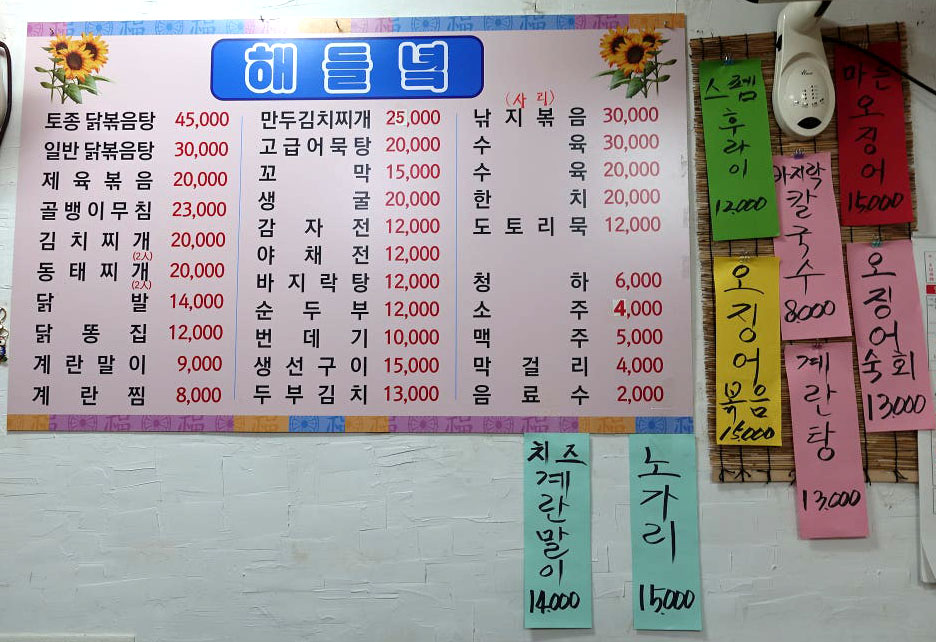 해들녘
토종 닭볶음탕 45,000
일반 닭볶음탕 30,000
제육볶음 20,000
골뱅이무침 23,000
김치찌개 (2人) 20,000
동태찌개 (2人) 20,000
닭발 14,000
닭똥집 12,000
계란말이 9,000
계란찜 8,000
만두김치찌개 25,000
고급어묵탕 20,000
꼬막 15,000
생굴 20,000
감자전 12,000
야채전 12,000
바지락탕 12,000
순두부 12,000
번데기 10,000
생선구이 15,000
두부김치 13,000
(사리)
낙지볶음 30,000
수육 30,000
수육 20,000
한치 20,000
도토리묵 12,000
청하 6,000
소주 4,000
맥주 5,000
막걸리 4,000
음료수 2,000
스팸후라이
12000
바지락칼국수
8,000
마른오징어
15,000
오징어볶음
15,000
계란탕
13,000
오징어숙회
13,000
치즈계란말이
14,000
노가리
15,000